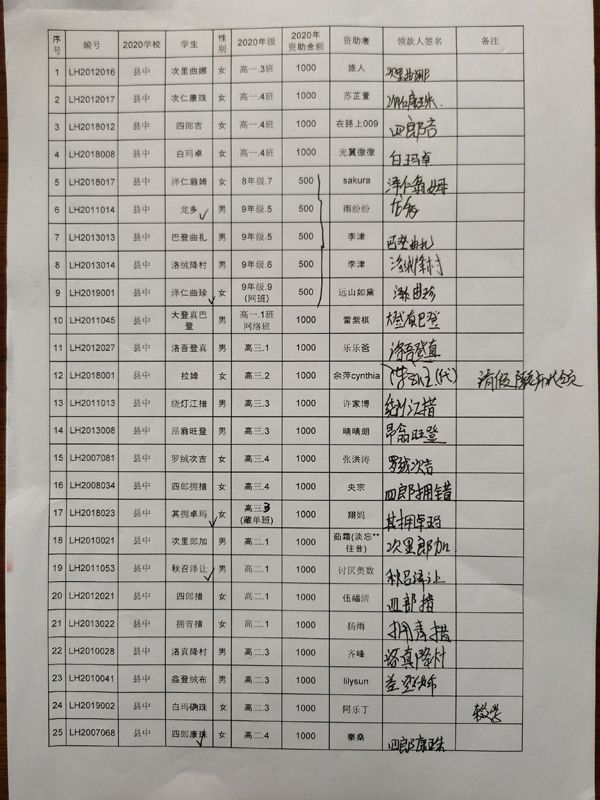 序号 编号 2020学校 学生 性别 2020年级 2020年资助金额 资助者 领款人签名 备注
1 LH2012016 县中 次里曲娜 女 高一.3班 1000 旅人 次里曲娜
2 LH2012017 县中 次仁康珠 女 高一.4班 1000 苏芷萱 次仁康珠.
3 LH2018012 县中 四郎吉 女 高一.4班 1000 在路上009 四郎吉
4 LH2018008 县中 白玛卓 女 高一.4班 1000 光翼微微 白玛卓
5 LH2018017 县中 泽仁翁姆 女 8年级.7 500 sakura 泽仁翁姆
6 LH2011014 县中 龙多 男 9年级.5 500 雨纷纷 龙多
7 LH2013013 县中 巴登曲扎 男 9年级.5 500 李津 巴登曲扎
8 LH2013014 县中 洛绒降村 男 9年级.6 500 李津 洛绒降村
9 LH2019001 县中 泽仁曲珍 女 9年级.9(网班) 500 远山如黛 泽仁曲珍
10 LH2011045 县中 大登真巴登 男 高一.1班网络班 1000 雷紫棋
11 LH2012027 县中 洛吾登真 男 高三.1 1000 乐乐爸 洛吾登真
12 LH2018001 县中 拉姆 女 高三.2 1000 余萍cynthia (代) 请假
13 LH2011013 县中 绕灯江措 男 高三.3 1000 许家博 绕灯江措
14 LH2013008 县中 昂翁旺登 男 高三.3 1000 晴晴朗 昂翁旺登
15 LH2007081 县中 罗绒次吉 女 高三.4 1000 张洪涛 罗绒次吉
16 LH2008034 县中 四郎拥措 女 高三.4 1000 央宗 四郎拥措
17 LH2018023 县中 其拥卓玛 女 高三3(藏单班) 1000 翔妈 其拥卓玛
18 LH2010021 县中 次里郎加 男 高二.1 1000 茹霜(淡忘**往昔) 次里郎加
19 LH2011053 县中 秋召泽让 男 高二.1 1000 讨厌奥数 秋召泽让
20 LH2012021 县中 四郎措 女 高二.1 1000 伍福清 四郎措
21 LH2013022 县中 拥青措 女 高二.1 1000 扬雨 拥青措
22 LH2010028 县中 洛真降村 男 高二.3 1000 齐峰 洛真降村
23 LH2010041 县中 益登绒布 男 高二.3 1000 lilysun 益登绒布
24 LH2019002 县中 白玛确珠 女 高二.3 1000 阿乐丁
25 LH2007068 县中 四郎康珠 女 高二.4 1000 秦桑 四郎康珠